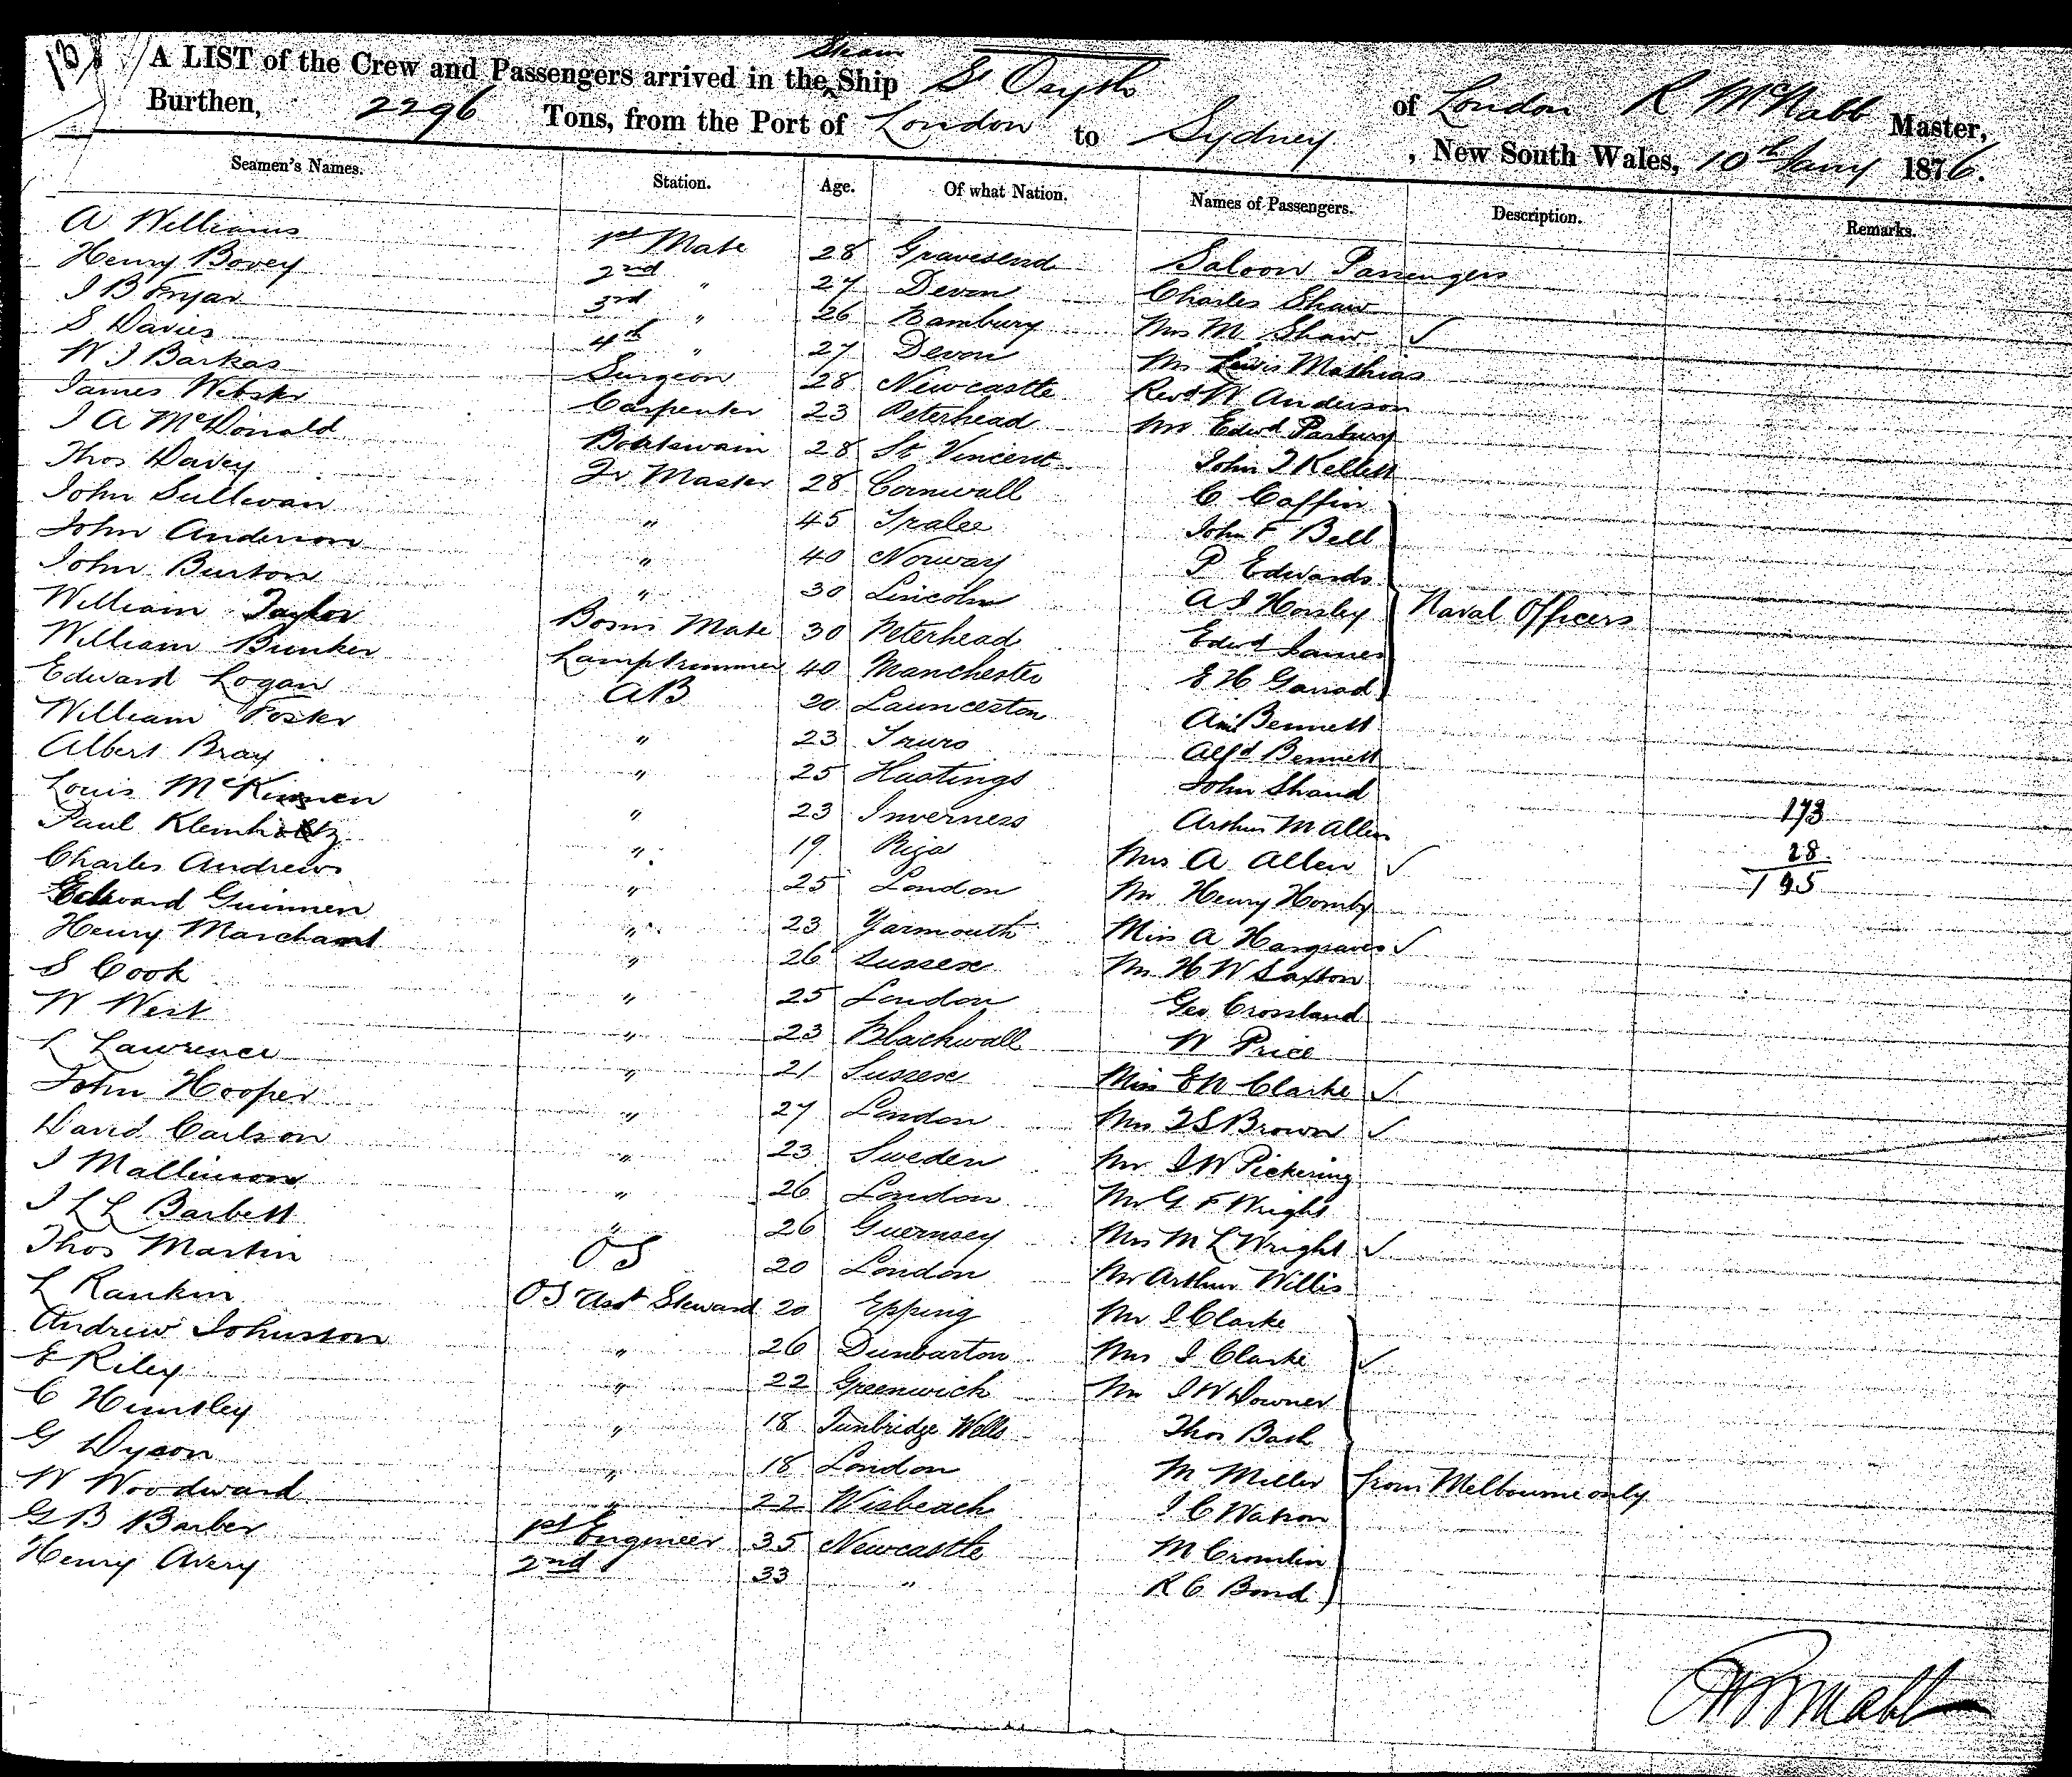 A LIST of the Crew and Passengers arrived in the Steam Ship St Osyth of London R McNabb Master,
Burthen, 2296 Tons, from the Port of London to Sydney, New South Wales, 10th Jany 1876.
Seamen's Names. Station. Age. Of what Nation. Names of Passengers. Description. Remarks.
A Williams 1st Mate 28 Gravesend Saloon Passengers
Henry Bovey 2nd " 27 Devon Charles Shaw
J B Fryar 3rd " 26 Bambury Mrs M Shaw ✓
S Davies 4th " 27 Devon Mr Lewis Mathias
W J Barkas Surgeon 28 Newcastle Revd W Anderson
James Webster Carpenter 23 Peterhead Mr Edwd Parbury
J A McDonald Boatswain 28 St Vincent John J Kellett
Thos Davey Qr Master 28 Cornwall C Caffin
John Sullivan " 45 Tralee John F Bell
John Anderson " 40 Norway P Edwards
John Burton " 30 Lincoln A J Horsley Naval Officers
William Taylor Bosns Mate 30 Peterhead Edwd James
William Bunker Lamptrimmer 40 Manchester E H Garrad
Edward Logan AB 20 Launceston Bennett
William Foster " 23 Truro Alfd Bennett
Albert Bray " 25 Hastings John Shand
Louis McKinnen " 23 Inverness Arthur M Allen 173
Paul Kleinholtz " 19 Riga Mrs A Allen ✓ 28
Charles Andrews " 25 London Mr Henry Hornby 145
Edward Guinnen " 23 Yarmouth Miss A Hargraves ✓
Henry Marchant " 26 Sussex Mr H W Saxton
S Cook " 25 London Geo Crossland
W West " 23 Blackwall W Price
L Lawrence " 21 Sussex Miss E N Clarke ✓
John Hooper " 27 London Mrs T S Brown ✓
David Carlson " 23 Sweden Mr J W Pickering
J Mallinson " 26 London Mr G F Wright
J L L Barbett " 26 Guernsey Mrs M L Wright ✓
Thos Martin OS 20 London Mr Arthur Willis
L Rankin OS Asst Steward 20 Epping Mr J Clarke
Andrew Johnston " 26 Dunbarton Mrs J Clarke ✓
E Riley " 22 Greenwich Mr J W Downer
C Huntley " 18 Tunbridge Wells Thos Bash
G Dyson " 18 London M Miller from Melbourne only
W Woodward " 22 Wisbeach J C Watson
G B Barber 1st Engineer 35 Newcastle M Cromlin
Henry Avery 2nd 33 " R C Bond